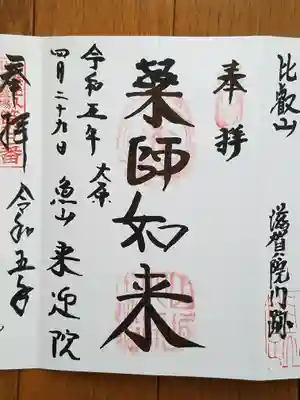 比叡山
滋賀院門跡
奉拝
薬師如来
大原
令和五年
四月二十九日
魚山 来迎院
奉拝
令和五年